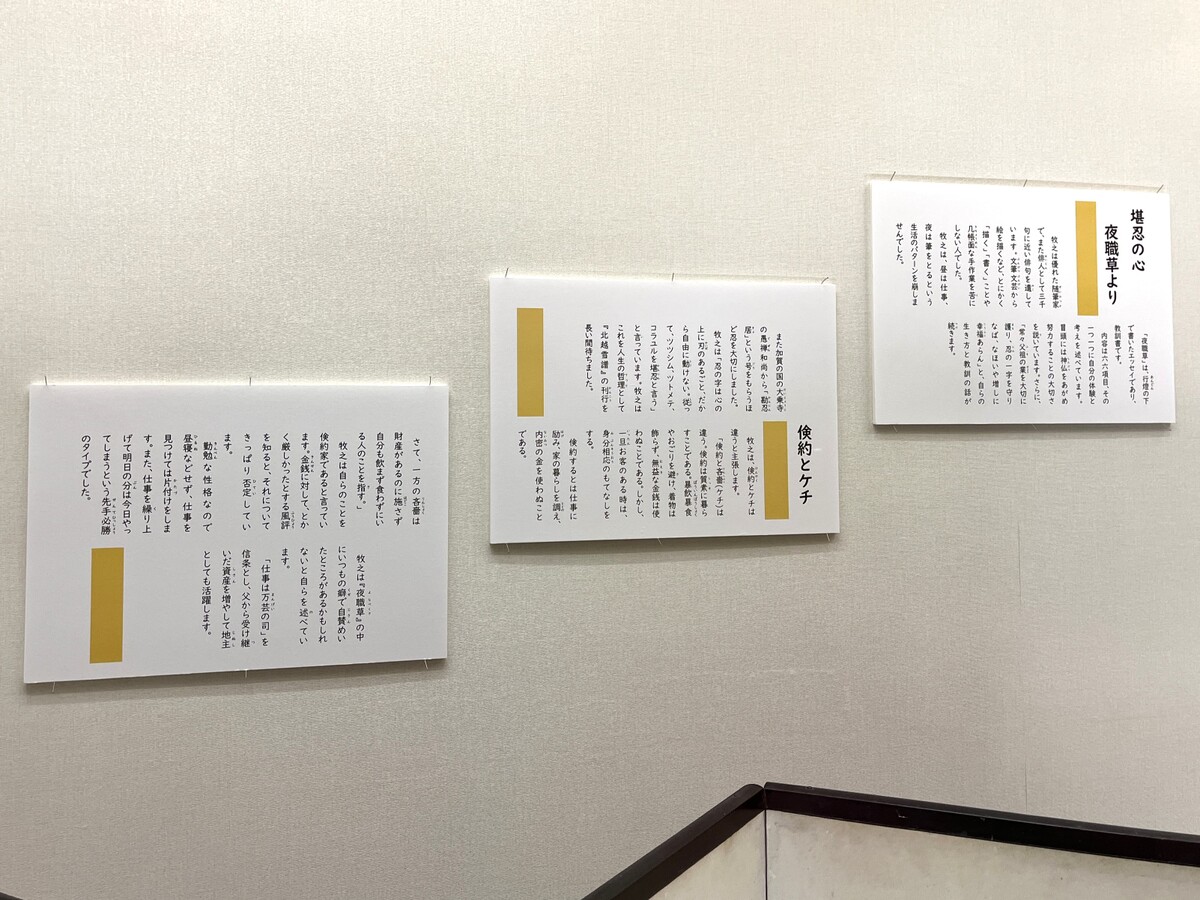 堪忍の心
夜職草より
牧之は優れた随筆家
で、また俳人として三千
句に近い俳句を遺して
います。文筆文芸から
絵を描くなど、とにかく
「描く」「書く」ことや
几帳面な手作業を苦に
しない人でした。
牧之は、昼は仕事、
夜は筆をとるという
生活のパターンを崩しま
せんでした。
「夜職草」は、行燈の下
で書いたエッセイであり、
教訓書です。
内容は六六項目、その
一つ一つに自分の体験と
考えを述べています。
冒頭には神仏をあがめ
努力することの大切さ
を説いています。さらに
「常々父祖の業を大切に
護り、忍の一字を守り
なば、なほいや増しに
幸福あらんと」と、自らの
生き方と教訓の話が
続きます。
また加賀の国の大乗寺
の愚禅和尚から「勘忍
居」という号をもらうほ
ど忍を大切にしました。
牧之は「忍の字は心の
上に刃のあるごと、だか
ら自由に動けない。従っ
て、ツツシム、ツトメテ、
コラユルを堪忍と言う」
と言っています。牧之は
これを人生の哲理として
『北越雪譜』の刊行を
長い間待ちました。
倹約とケチ
牧之は、倹約とケチは
違うと主張します。
「倹約と吝嗇(ケチ)は
違う。倹約は質素に暮ら
すことである。暴飲暴食
やおごりを避け、着物は
飾らず、無益な金銭は使
わぬことである。しかし、
一旦お客のある時は、
身分相応のもてなしを
する。
倹約するとは仕事に
励み、家の暮らしを調え、
内密の金を使わぬこと
である。
さて、一方の吝嗇は
財産があるのに施さず
自分も飲まず食わずにい
る人のことを指す。」
牧之は自らのことを
倹約家であると言ってい
ます。金銭に対して、とか
く厳しかったとする風評
を知ると、それについて
きっぱり否定してい
ます。
勤勉な性格なので
昼寝などせず、仕事を
見つけては片付けをしま
す。また、仕事を繰り上
げて明日の分は今日やっ
てしまうという先手必勝
のタイプでした。
牧之は『夜職草』の中
にいつもの癖で自賛めい
たところがあるかもしれ
ないと自らを述べてい
ます。
「仕事は万芸の司」を
信条とし、父から受け継
いだ資産を増やして地主
としても活躍します。